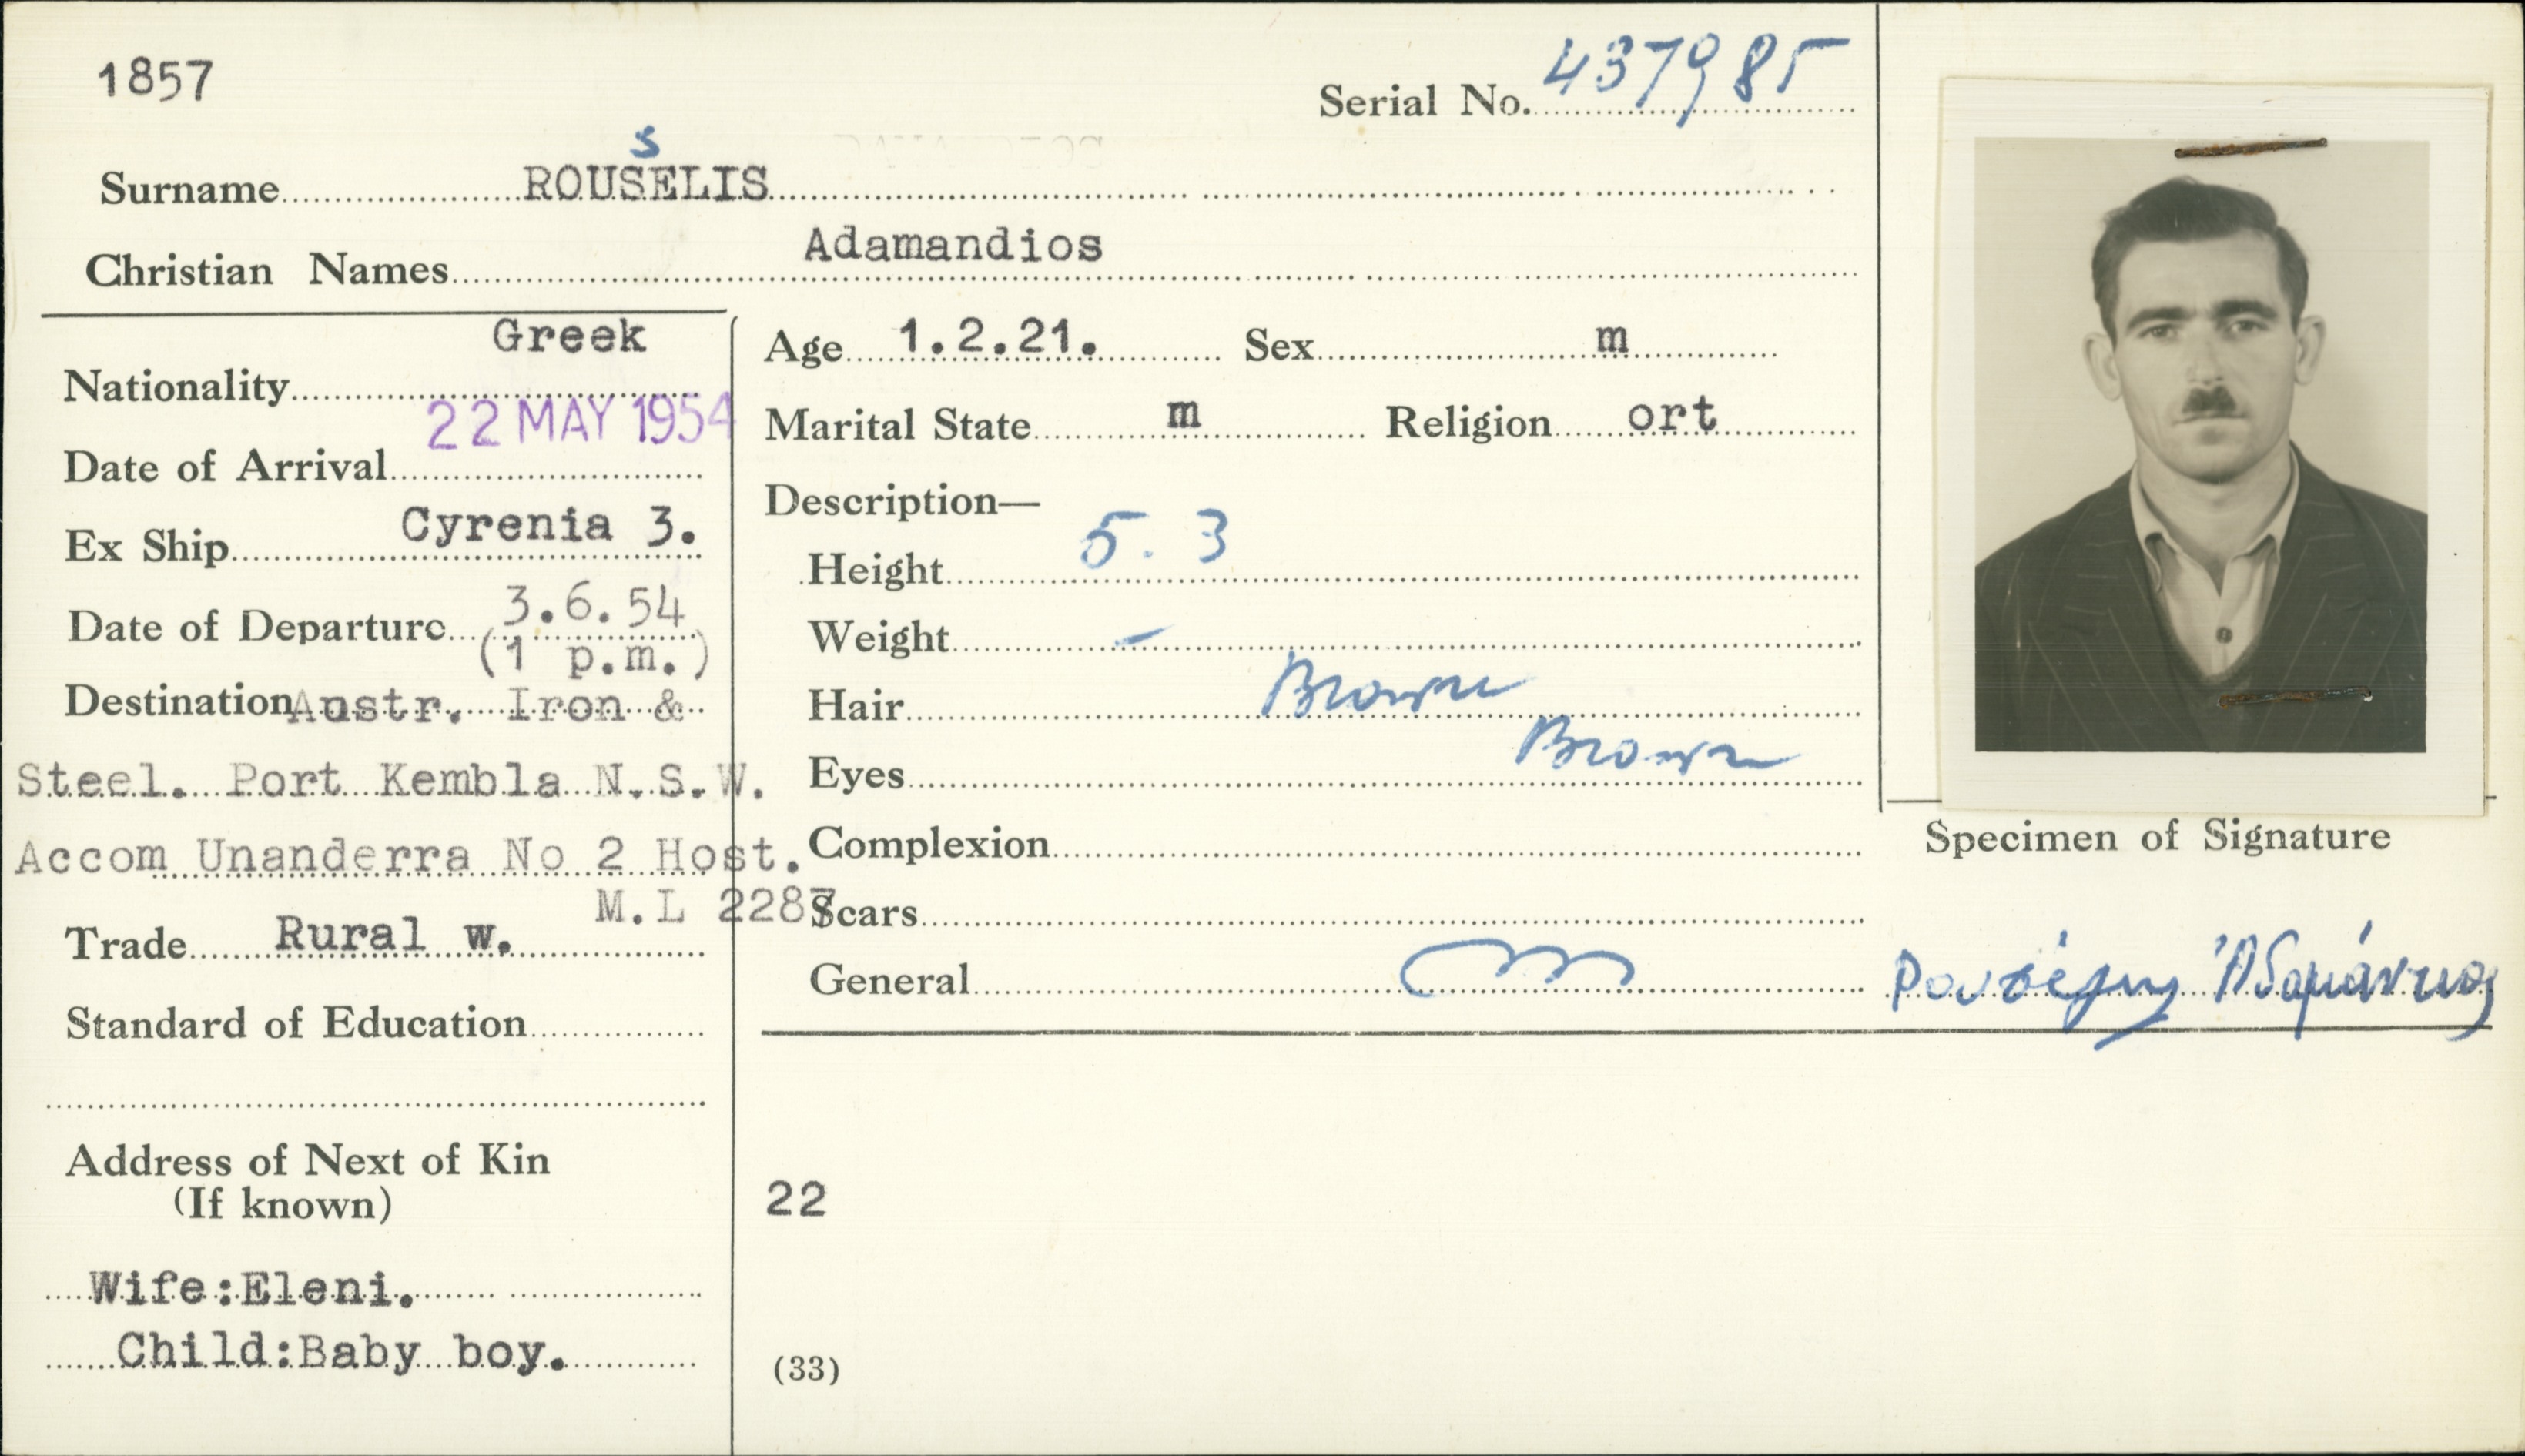 1857
Serial No. 437985
s
Surname ROUSELIS
Christian Names Adamandios
Greek
Nationality
22 MAY 1954
Date of Arrival
Ex Ship Cyrenia 3.
Date of Departure 3.6.54
(1 p.m.)
Destination Austr. Iron &
Steel. Port Kembla N.S.W.
Accom Unanderra No 2 Host.
M.L 2287
Trade Rural w.
Standard of Education
Address of Next of Kin
(If known)
Wife:Eleni.
Child:Baby boy.
Age 1.2.21. Sex m
Marital State m Religion ort
Description—
Height 5. 3
Weight –
Hair Brown
Eyes Brown
Complexion
Scars
General
22
(33)
Specimen of Signature
Ρουσέλης Ἀδαμάντιος